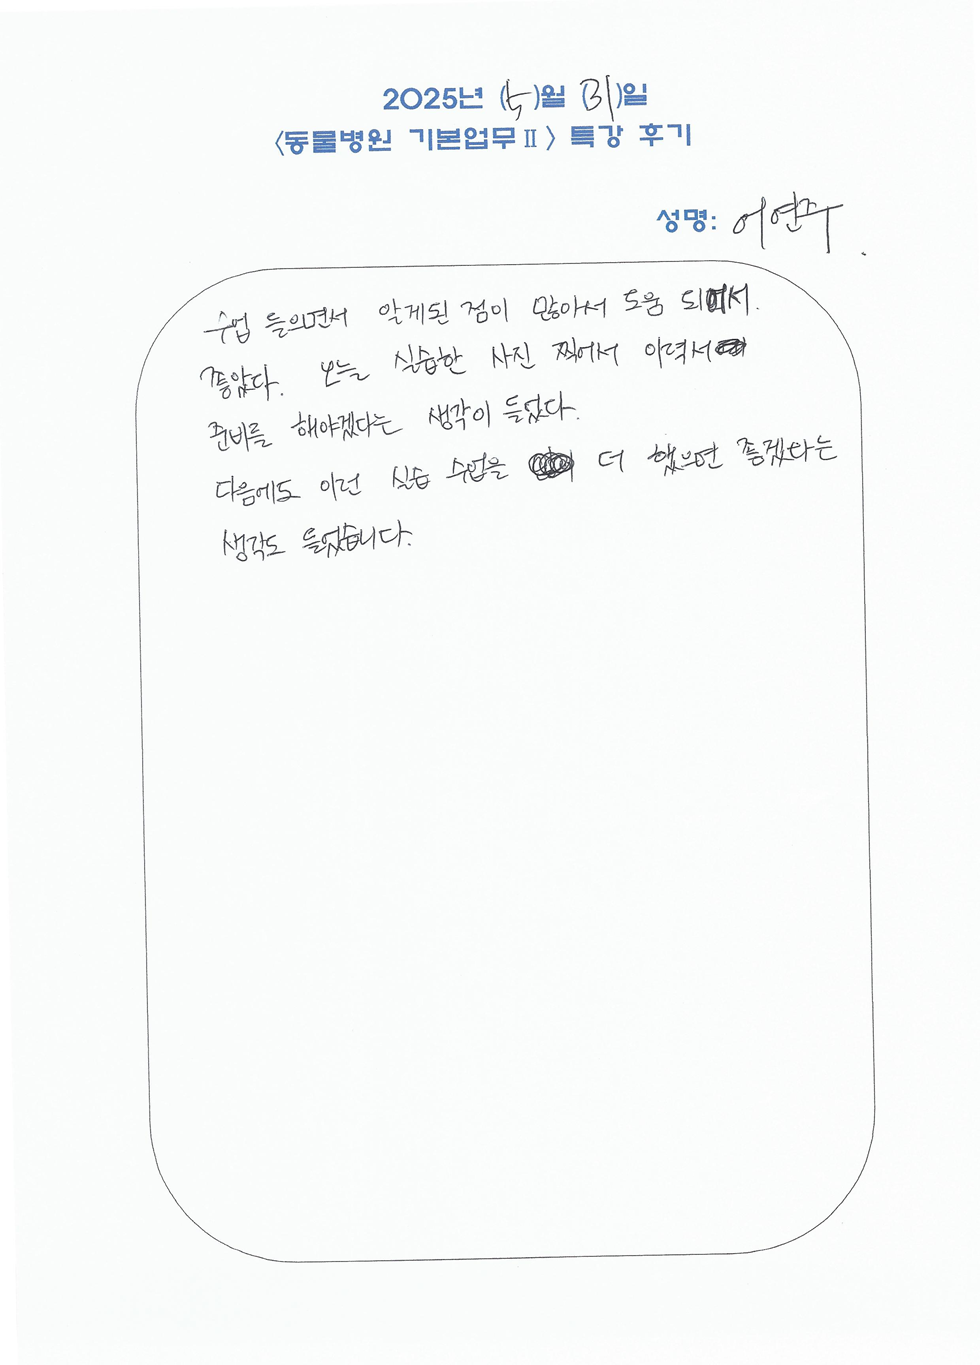 2025년 (5)월 (31)일
〈동물병원 기본업무Ⅱ〉 특강 후기
성명: 어연주
수업 들으면서 알게된 점이 많아서 도움 되어서.
좋았다. 오늘 실습한 사진 찍어서 이력서
준비를 해야겠다는 생각이 들었다.
다음에도 이런 실습 수업을 더 했으면 좋겠다는
생각도 들었습니다.